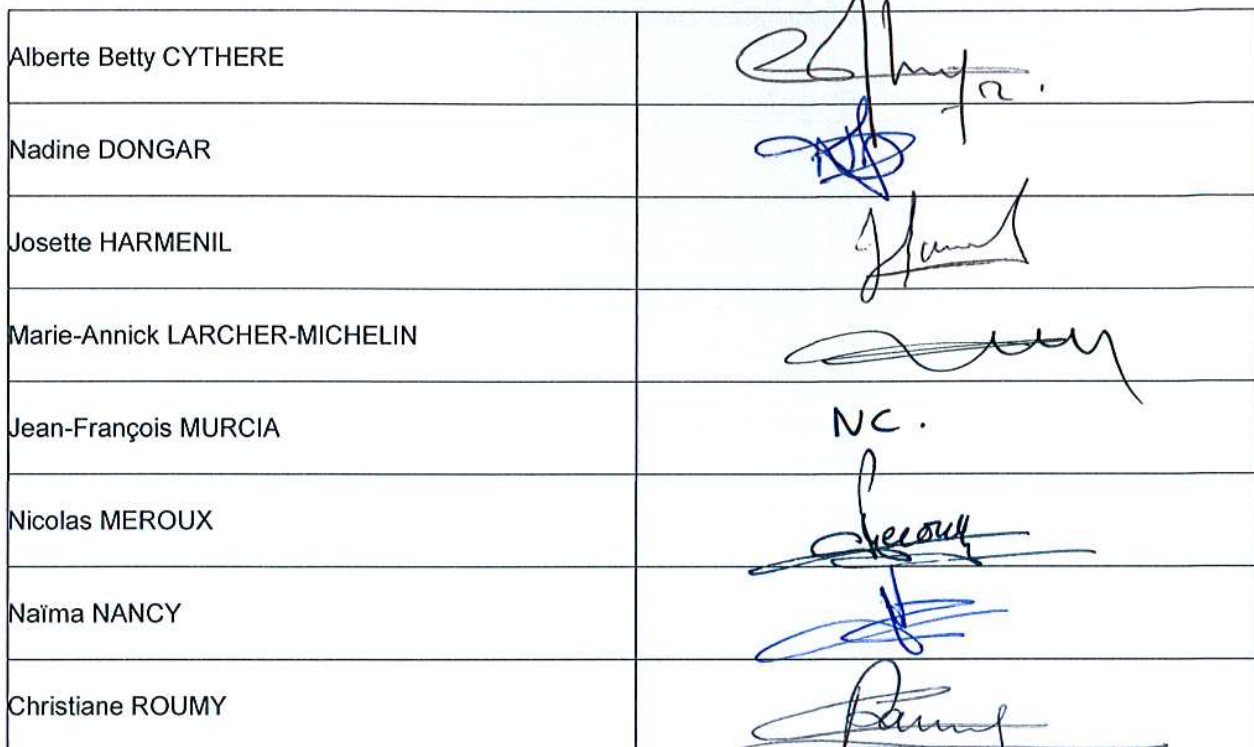 Alberte Betty CYTHERE
Nadine DONGAR
Josette HARMENIL
Marie-Annick LARCHER-MICHELIN
Jean-François MURCIA
NC.
Nicolas MEROUX
Naïma NANCY
Christiane ROUMY